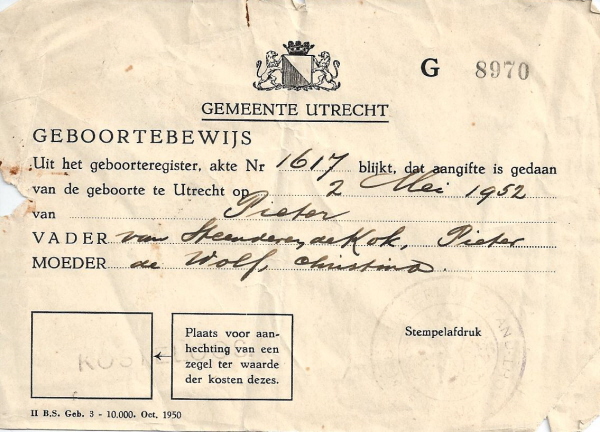 G 8970
GEMEENTE UTRECHT
GEBOORTEBEWIJS
Uit het geboorteregister, akte Nr 1617 blijkt, dat aangifte is gedaan
van de geboorte te Utrecht op 2 Mei 1952
van Pieter
VADER van Steenderen, de Kok, Pieter
MOEDER de Wolf, Christina.
KOSTELOOS
Plaats voor aan-
hechting van een
zegel ter waarde
der kosten dezes.
Stempelafdruk
II B.S. Geb. 3 - 10.000. Oct. 1950